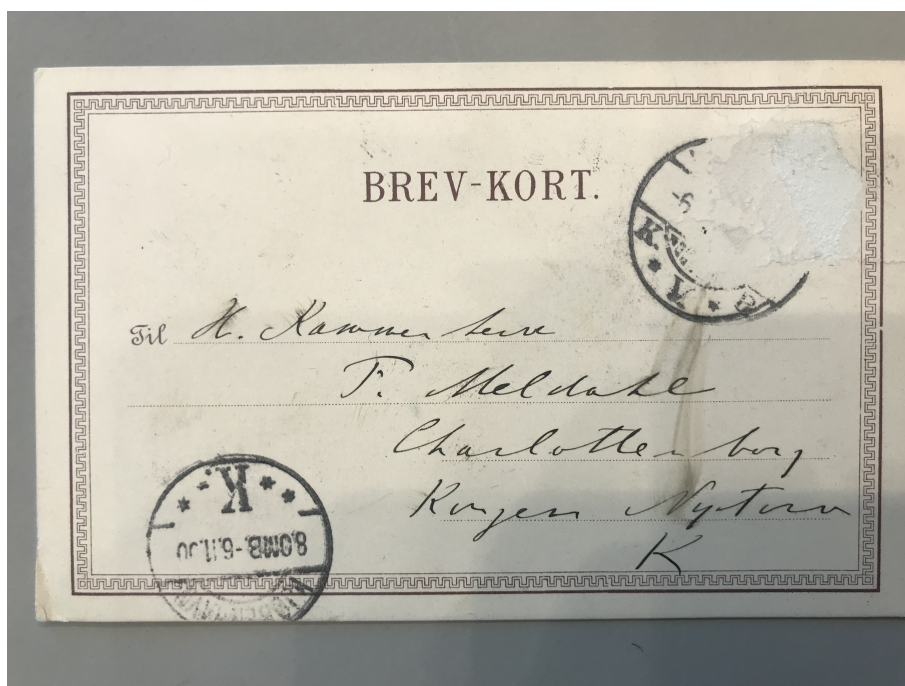 BREV-KORT.
Til H. Kammerherre
F. Meldahl
Charlottenborg
Kongens Nytorv
K
K.
8.OMB. -6.11.00
KJØBENHAVN
K.